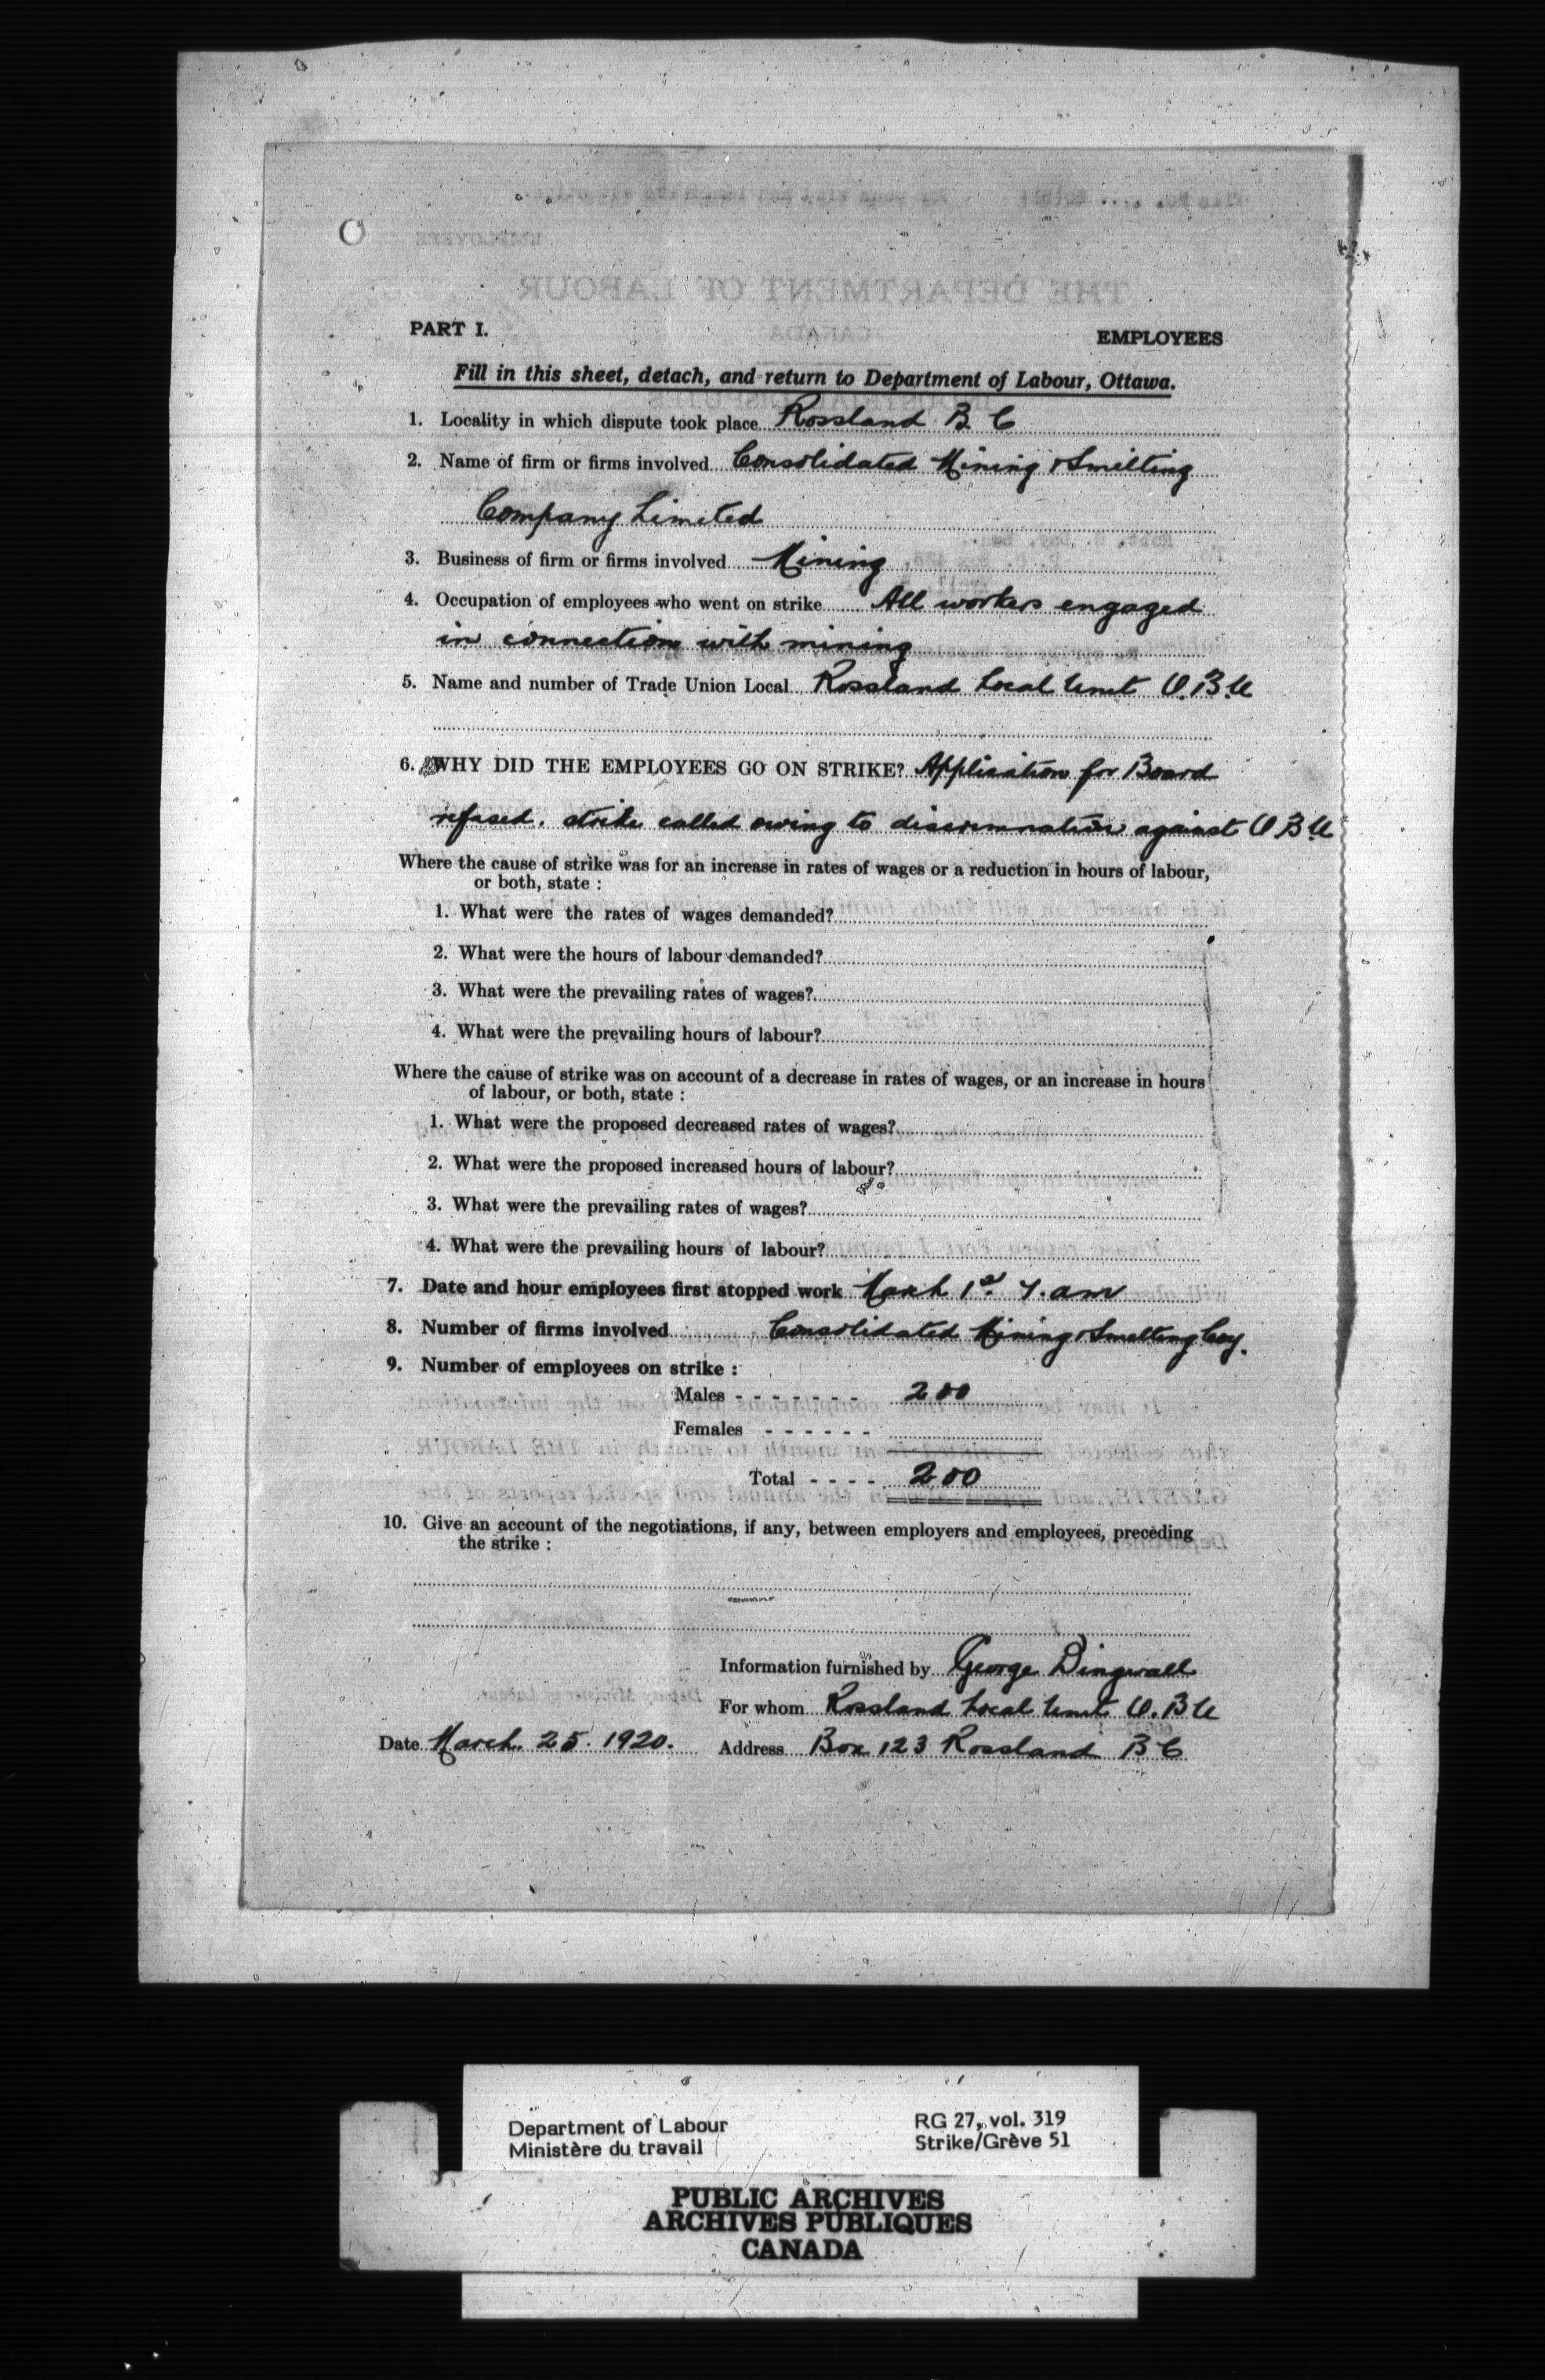 PART I.
EMPLOYEES
Fill in this sheet, detach, and return to Department of Labour, Ottawa.
1. Locality in which dispute took place Rossland B. C
2. Name of firm or firms involved Consolidated Mining & Smelting
Company Limited
3. Business of firm or firms involved Mining
4. Occupation of employees who went on strike All workers engaged
in connection with mining
5. Name and number of Trade Union Local Rossland Local Unit O.B.U
6. WHY DID THE EMPLOYEES GO ON STRIKE? Application for Board
refused. strike called owing to discrimination against O B U
Where the cause of strike was for an increase in rates of wages or a reduction in hours of labour,
or both, state :
1. What were the rates of wages demanded?
2. What were the hours of labour demanded?
3. What were the prevailing rates of wages?
4. What were the prevailing hours of labour?
Where the cause of strike was on account of a decrease in rates of wages, or an increase in hours
of labour, or both, state :
1. What were the proposed decreased rates of wages?
2. What were the proposed increased hours of labour?
3. What were the prevailing rates of wages?
4. What were the prevailing hours of labour?
7. Date and hour employees first stopped work March 1st 7. am
8. Number of firms involved Consolidated Mining & Smelting Coy.
9. Number of employees on strike :
Males - - - - - - - 200
Females - - - - - -
Total - - - - 200
10. Give an account of the negotiations, if any, between employers and employees, preceding
the strike :
Information furnished by George Dingwall
For whom Rossland Local Unit O.B U
Date March 25. 1920. Address Box 123 Rossland B C
Department of Labour
Ministère du travail
RG 27, vol. 319
Strike/Grève 51
PUBLIC ARCHIVES
ARCHIVES PUBLIQUES
CANADA